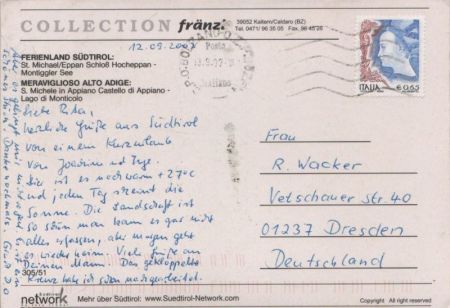 COLLECTION fränzi
39052 Kaltern/Caldaro (BZ)
Tel. 0471/96 35 05 Fax. 96 45 26
12.09.2007
FERIENLAND SÜDTIROL:
St. Michael/Eppan Schloß Hocheppan -
Montiggler See
MERAVIGLIOSO ALTO ADIGE:
S. Michele in Appiano Castello di Appiano -
Lago di Monticolo
ITALIA € 0,65
Herzliche Grüße aus Südtirol
von einem Kurzurlaub
von Joachim und Inge.
Hier ist es noch warm +27°C
und jeden Tag scheint die
Sonne. Die Landschaft ist
so schön man kann es gar nicht
alles erfassen, aber morgen geht
es wieder heim. Viele Grüße an
Deinen Mann. Das geklöppelte
Frau
R. Wacker
Vetschauer str. 40
01237 Dresden
Deutschland
305/51
network
Mehr über Südtirol: www.Suedtirol-Network.com
Copyright All right reserved